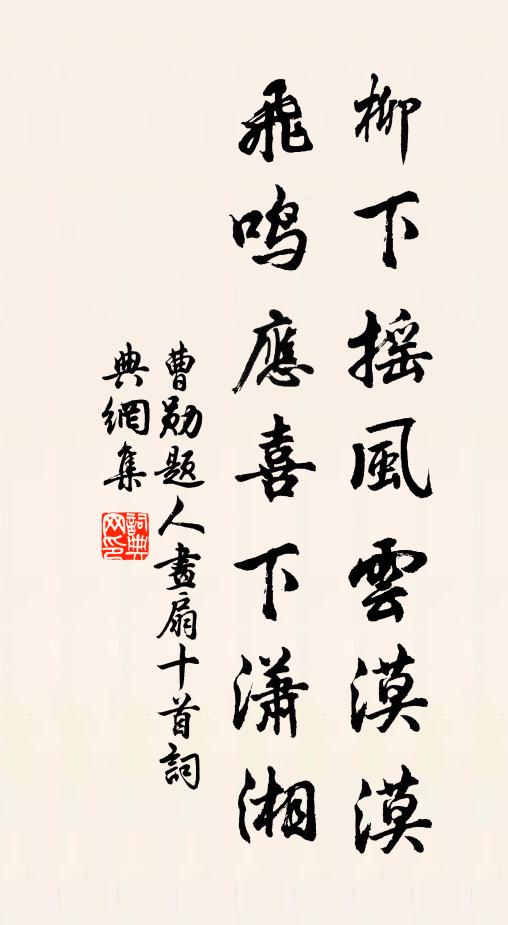 柳下摇風雲漠漠
飛鳴應喜下瀟湘
曹勛題人畫扇十首詞
典網集
詞典
网印